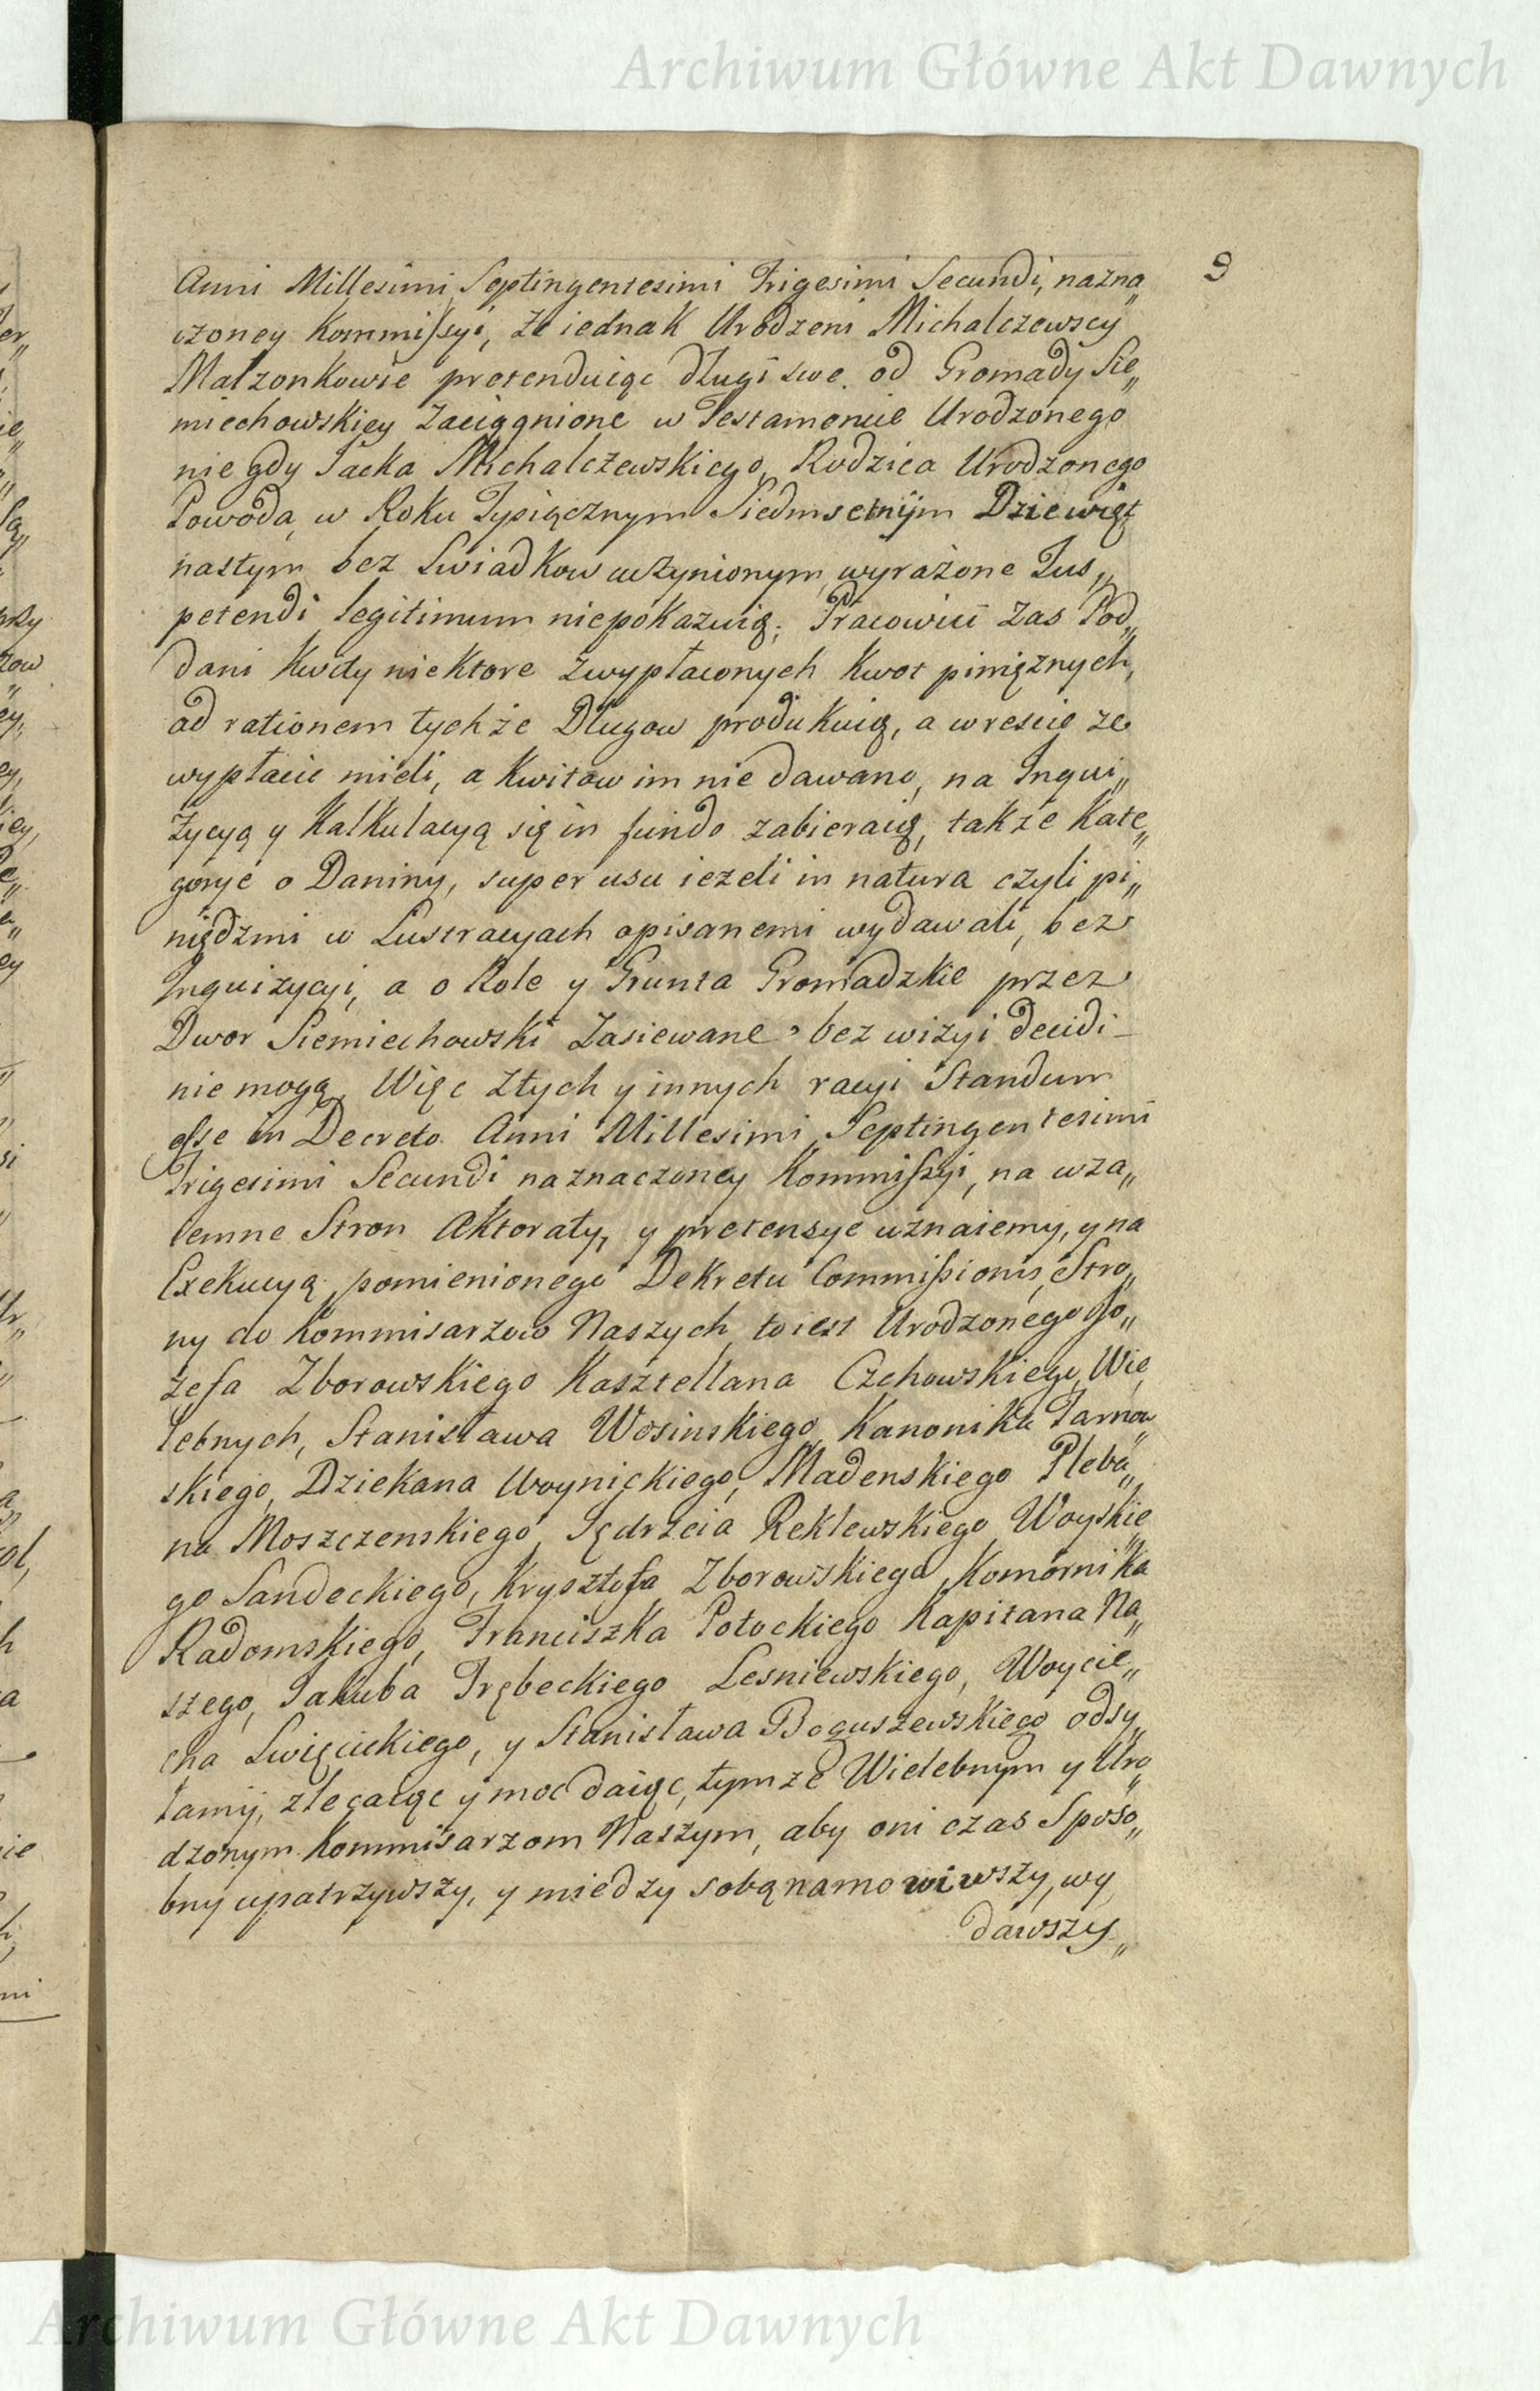 Archiwum Główne Akt Dawnych
9
Anni Millesimi Septingentesimi Trigesimi Secundi, nazna„
czoney Kommissyi, że iednak Urodzeni Michalczewscy
Małzonkowie pretenduiąc długi swe od Gromady Sie„
miechowskiey zaciągnione w Testamencie Urodzonego
niegdy Jacka Michalczewskiego, Rodzica Urodzonego
Powoda, w Roku Tysiącznym Siedmsetnÿm Dziewięt
nastym bez Swiadkow uczynionym, wyrażone Jus„
petendi legitimum niepokazuią; Pracowici zas Pod„
dani Kwity niektore zwypłaconych Kwot pinięznych,
ad rationem tychże Długow produkuią, a wrescie że
wypłacić mieli, a Kwitow im nie dawano, na Inqui„
zycyą y Kalkulacyą się in fundo zabieraią, także Kate„
gorye o Daniny, super usu ieżeli in natura czyli pi„
niędzmi w Lustracyach opisanemi wydawali, bez
Inquizycyi, a o Role y Grunta Gromadzkie przez
Dwor Siemiechowski Zasiewane bez wizyi decidi
nie mogą, Więc ztych y innych racyi Standum
esse in Decreto Anni Millesimi Septingentesimi
Trigesimi Secundi naznaczoney Kommissyi, na wza„
iemne Stron Aktoraty, y pretensye uznaiemy, y na
Exekucyą pomienionego Dekretu Commissionis, Stro„
ny do Kommisarzow Naszych, toiest Urodzonego Jo„
zefa Zborowskiego Kasztellana Czchowskiego, Wie„
lebnych, Stanisława Wosinskiego, Kanonika Tarnow„
skiego, Dziekana Woynickiego, Madenskiego Pleba„
na Moszczenskiego, Jędrzeia Reklewskiego Woyskie„
go Sandeckiego, Krysztofa Zborowskiego, Komornika
Radomskiego, Franciszka Potockiego Kapitana Na„
szego, Jakuba Trębeckiego Lesniewskiego, Woycie„
cha Swięcickiego, y Stanisława Boguszewskiego odsy„
łamy, zlecaiąc y moc daiąc, tymże Wielebnym y Uro„
dzonym Kommisarzom Naszym, aby oni czas Sposo„
bny upatrzywszy, y miedzy sobą namowiwszy, wy
dawszy„
Archiwum Główne Akt Dawnych